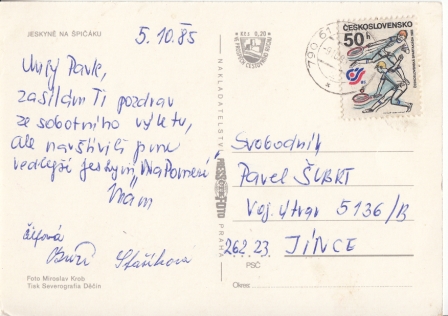 JESKYNĚ NA ŠPIČÁKU
5.10.85
Milý Pavle,
zasílám Ti pozdrav
ze sobotního výletu,
ale navštívili jsme
vedlejší jeskyni „Na Pomezí"
Mám
Foto Miroslav Krob
Tisk Severografia Děčín
KČS 0,20
NAKLADATELSTVÍ
PRESSFOTO
PRAHA
ČESKOSLOVENSKO
50 h
790 6
Svobodník
Pavel ŠUBRT
Voj. útvar 5136/B
262 23 JINCE
PSČ
Okres